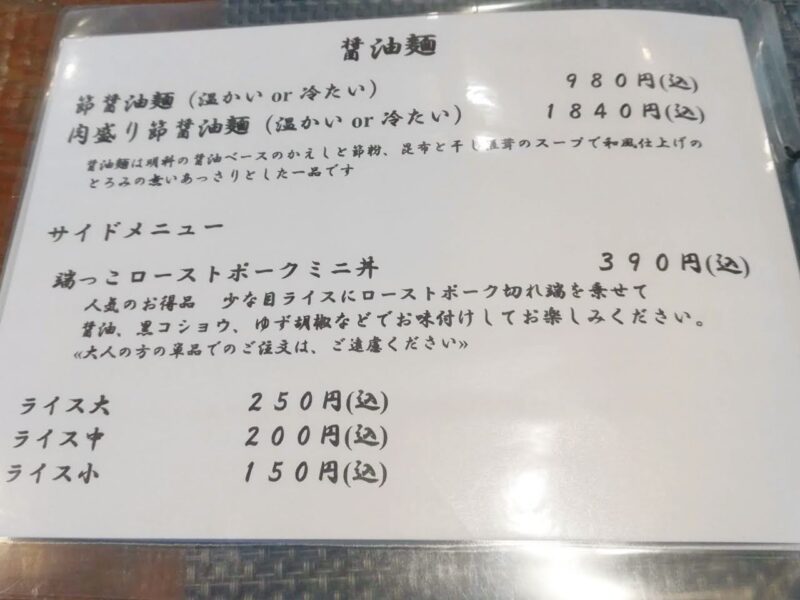 醤油麺
節醤油麺（温かい or 冷たい） 980円(込)
肉盛り節醤油麺（温かい or 冷たい） 1840円(込)
醤油麺は明科の醤油ベースのかえしと節粉、昆布と干し椎茸のスープで和風仕上げの
とろみの無いあっさりとした一品です
サイドメニュー
端っこローストポークミニ丼 390円(込)
人気のお得品 少な目ライスにローストポーク切れ端を乗せて
醤油、黒コショウ、ゆず胡椒などでお味付けしてお楽しみください。
≪大人の方の単品でのご注文は、ご遠慮ください≫
ライス大 250円(込)
ライス中 200円(込)
ライス小 150円(込)